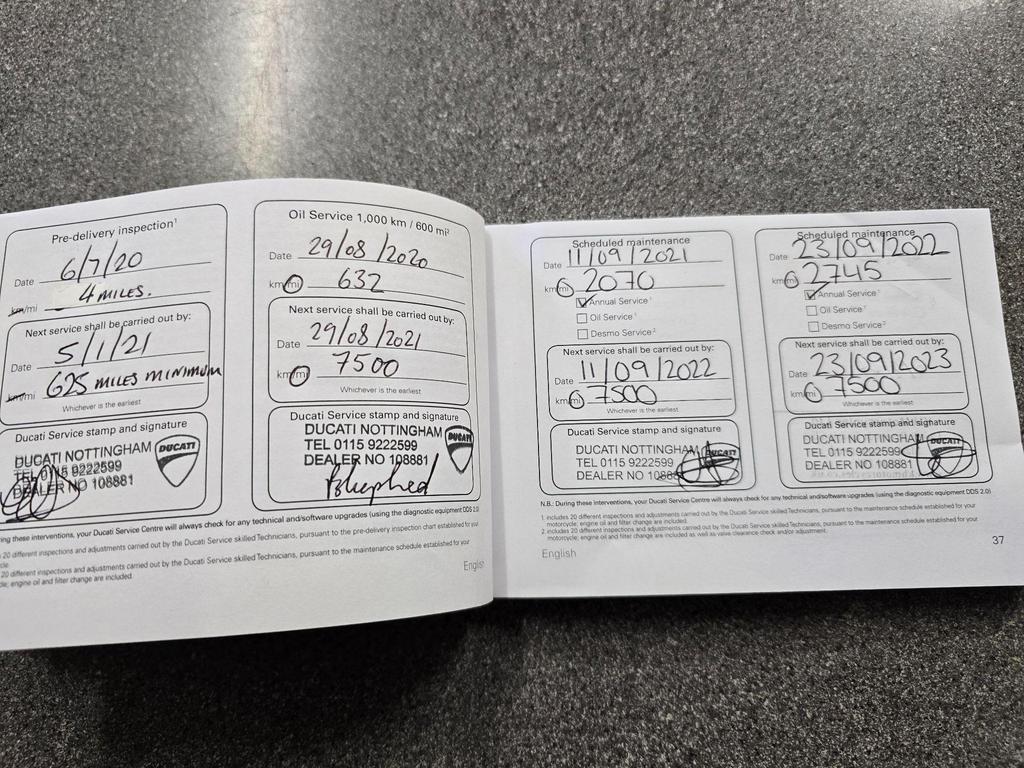 Pre-delivery inspection¹
Date 6/7/20
km/mi 4 MILES.
Next service shall be carried out by:
Date 5/1/21
km/mi 625 MILES MINIMUM
Whichever is the earliest
Ducati Service stamp and signature
DUCATI NOTTINGHAM
DUCATI
TEL 0115 9222599
DEALER NO 108881
Oil Service 1,000 km / 600 mi²
Date 29/08/2020
km/mi 632
Next service shall be carried out by:
Date 29/08/2021
km/mi 7500
Whichever is the earliest
Ducati Service stamp and signature
DUCATI NOTTINGHAM
DUCATI
TEL 0115 9222599
DEALER NO 108881
ring these interventions, your Ducati Service Centre will always check for any technical and/software upgrades (using the diagnostic equipment DDS 2.0)
20 different inspections and adjustments carried out by the Ducati Service skilled Technicians, pursuant to the pre-delivery inspection chart established for your
cle.
20 different inspections and adjustments carried out by the Ducati Service skilled Technicians, pursuant to the maintenance schedule established for your
cle; engine oil and filter change are included.
English
Scheduled maintenance
Date 11/09/2021
km/mi 2070
Annual Service¹
Oil Service¹
Desmo Service²
Next service shall be carried out by:
Date 11/09/2022
km/mi 7500
Whichever is the earliest
Ducati Service stamp and signature
DUCATI NOTTINGHAM
DUCATI
TEL 0115 9222599
DEALER NO 108881
Scheduled maintenance
Date 23/09/2022
km/mi 2745
Annual Service¹
Oil Service¹
Desmo Service²
Next service shall be carried out by:
Date 23/09/2023
km/mi 7500
Whichever is the earliest
Ducati Service stamp and signature
DUCATI NOTTINGHAM
DUCATI
TEL 0115 9222599
DEALER NO 108881
N.B.: During these interventions, your Ducati Service Centre will always check for any technical and/software upgrades (using the diagnostic equipment DDS 2.0)
1. includes 20 different inspections and adjustments carried out by the Ducati Service skilled Technicians, pursuant to the maintenance schedule established for your
motorcycle; engine oil and filter change are included.
2. includes 20 different inspections and adjustments carried out by the Ducati Service skilled Technicians, pursuant to the maintenance schedule established for your
motorcycle; engine oil and filter change are included as well as valve clearance check and/or adjustment.
English
37